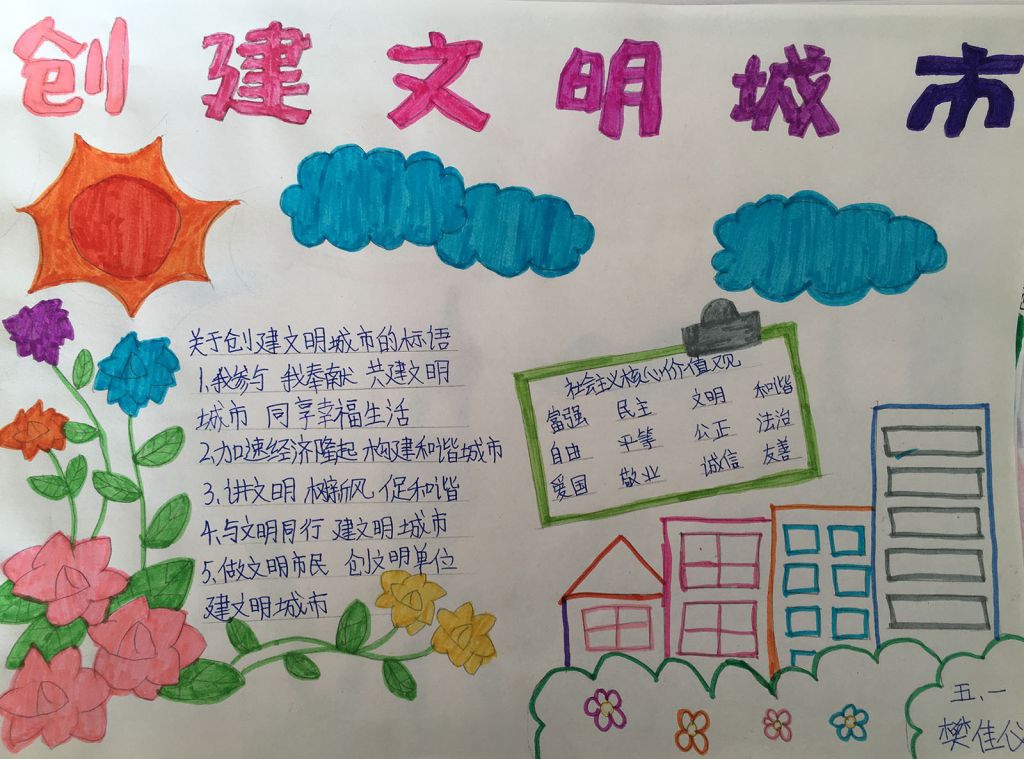 创建文明城市
关于创建文明城市的标语
1、我参与 我奉献 共建文明
城市 同享幸福生活
2、加速经济隆起 构建和谐城市
3、讲文明 树新风 促和谐
4、与文明同行 建文明城市
5、做文明市民 创文明单位
建文明城市
社会主义核心价值观
富强 民主 文明 和谐
自由 平等 公正 法治
爱国 敬业 诚信 友善
五、一
樊佳仪